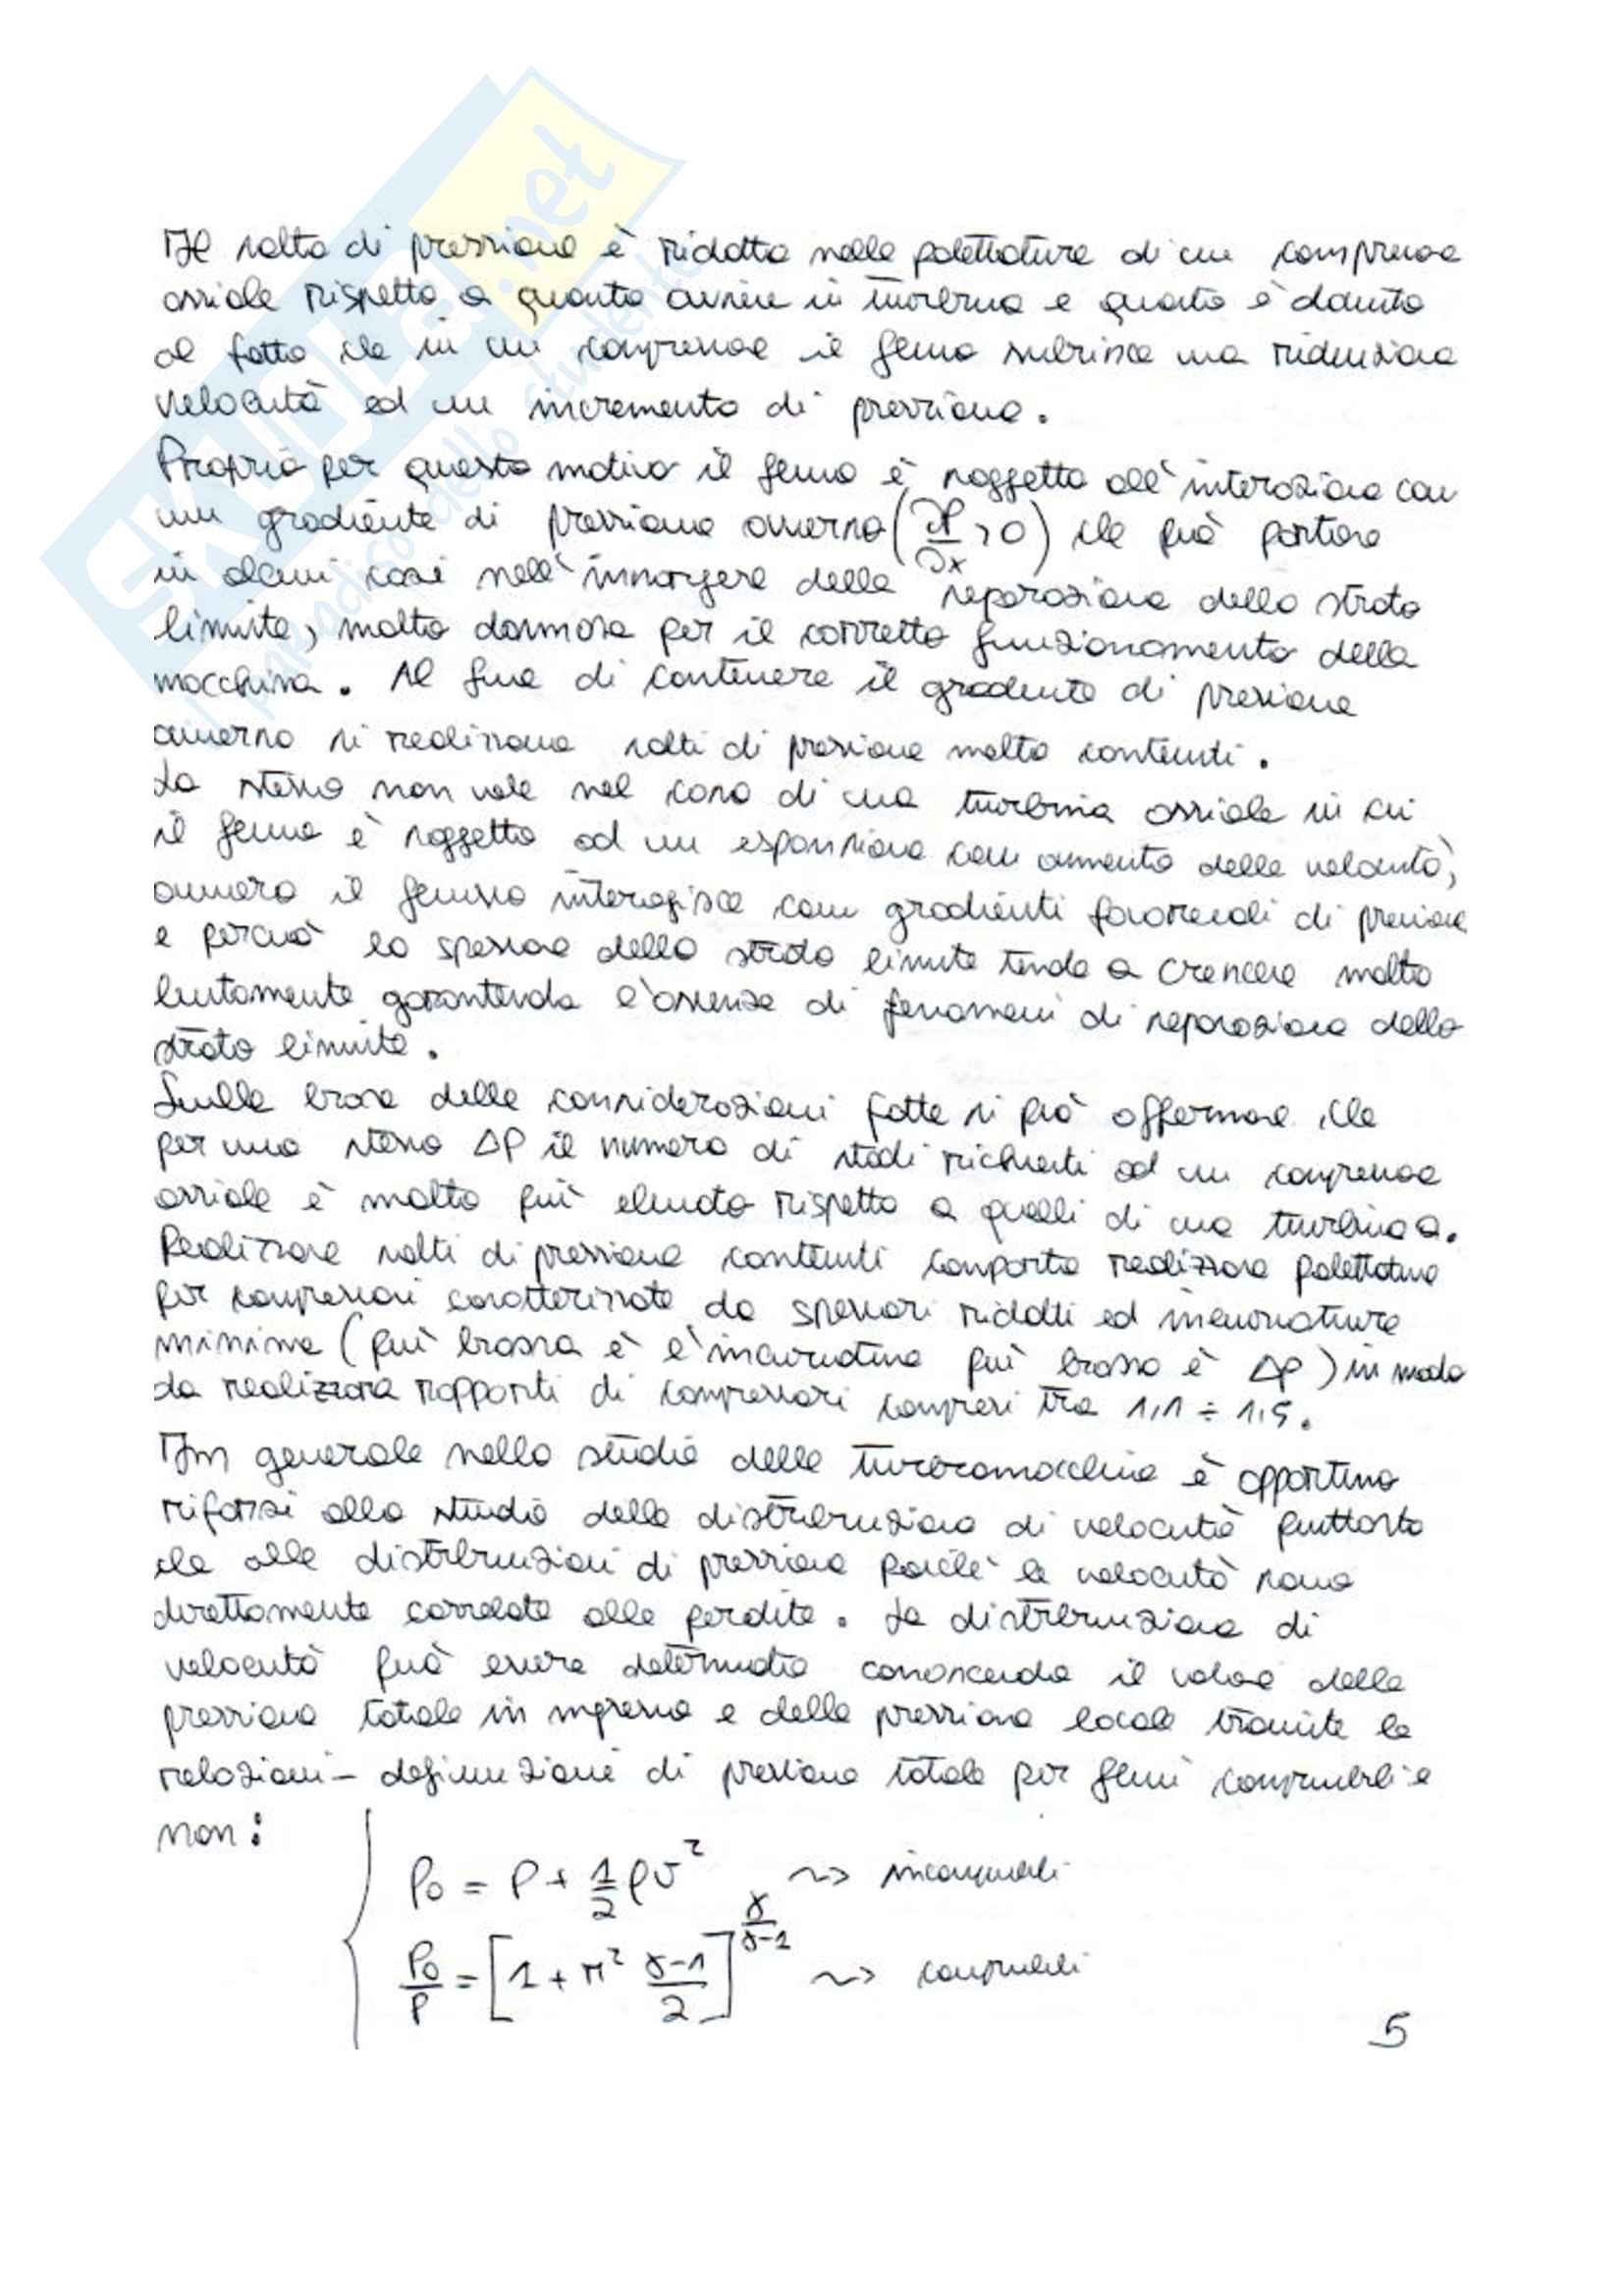 Il salto di pressione è ridotto nelle palettature di un compressore
assiale rispetto a quanto avviene in turbina e questo è dovuto
al fatto che in un compressore il flusso subisce una riduzione
velocità ed un incremento di pressione.
Proprio per questo motivo il flusso è soggetto all'interazione con
un gradiente di pressione avverso (∂P/∂x > 0) che può portare
in alcuni casi nell'insorgere della separazione dello strato
limite, molto dannosa per il corretto funzionamento della
macchina. Al fine di contenere il gradiente di pressione
avverso si realizzano salti di pressione molto contenuti.
Lo stesso non vale nel caso di una turbina assiale in cui
il flusso è soggetto ad un espansione con aumento delle velocità,
ovvero il flusso interagisce con gradienti favorevoli di pressione
e perciò lo spessore dello strato limite tende a crescere molto
lentamente garantendo l'assenza di fenomeni di separazione dello
strato limite.
Sulla base delle considerazioni fatte si può affermare che
per uno stesso ΔP il numero di stadi richiesti ad un compressore
assiale è molto più elevato rispetto a quelli di una turbina a.
Realizzare salti di pressione contenuti comporta realizzare palettature
per compressori caratterizzate da spessori ridotti ed incurvature
minime (più bassa è l'incurvatura più basso è ΔP) in modo
da realizzare rapporti di compressori compresi tra 1,1 ÷ 1,5.
In generale nello studio delle turbomacchine è opportuno
riferirsi allo studio della distribuzione di velocità piuttosto
che alle distribuzioni di pressione poichè le velocità sono
direttamente correlate alle perdite. La distribuzione di
velocità può essere determinata conoscendo il valore della
pressione totale in ingresso e della pressione locale tramite le
relazioni - definizioni di pressione totale per flussi comprimibili e
non:
P₀ = P + 1/2 ρv² ~> incomprimibili
P₀/P = [1 + M² (γ-1)/2]^(γ/(γ-1)) ~> comprimibili
5
SKUOLA.net
il paradiso dello studente